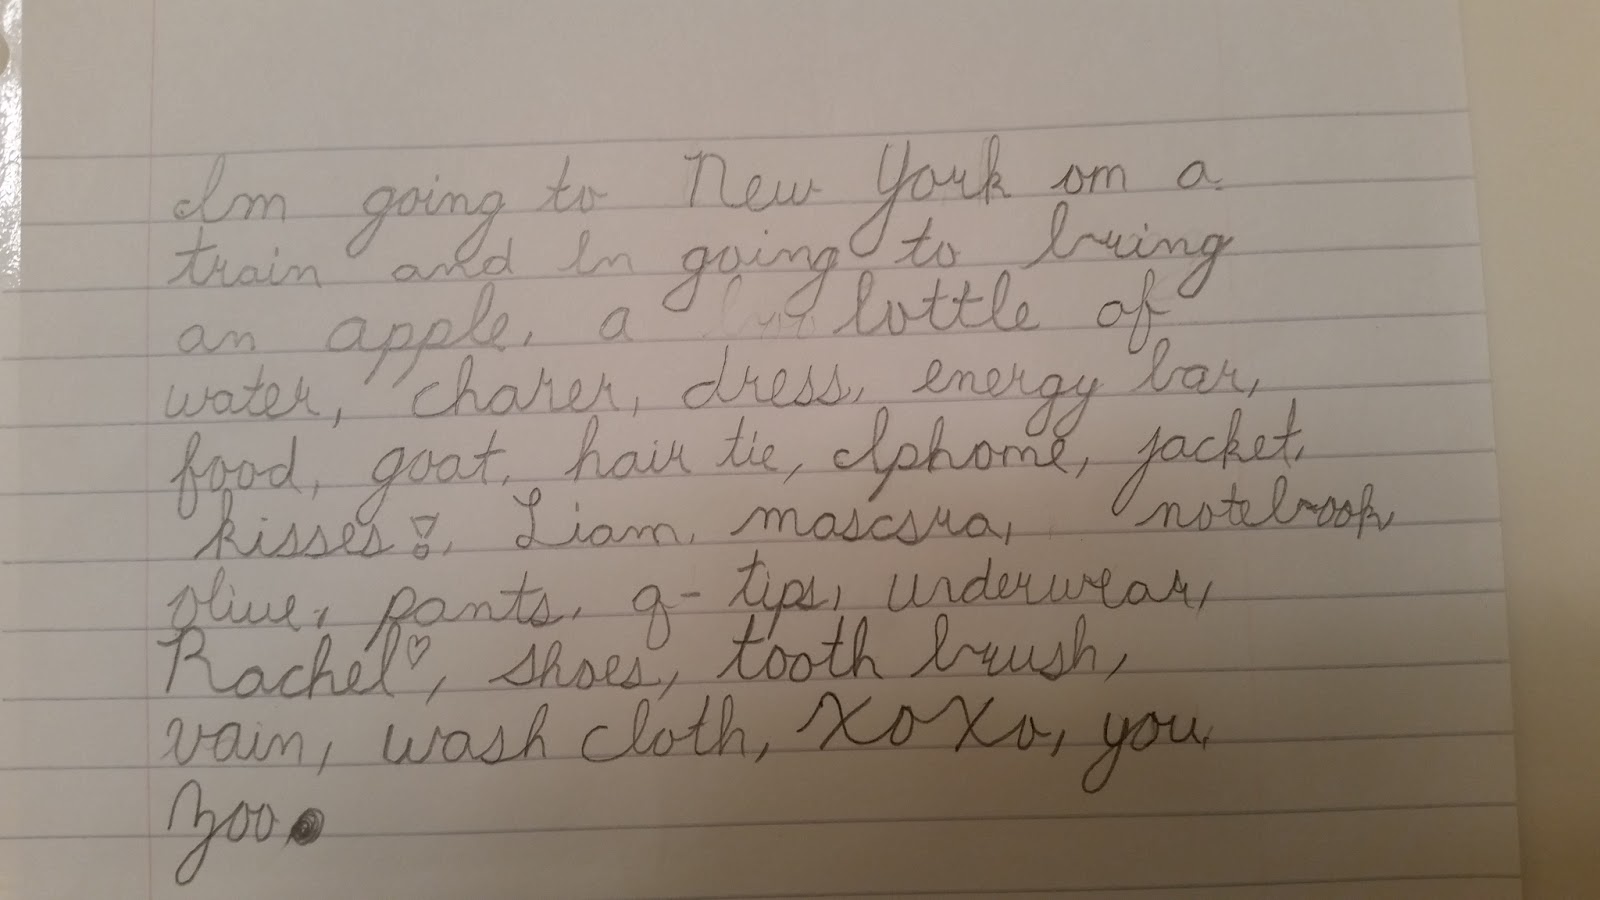 Im going to New York on a
train and In going to bring
an apple, a bottle of
water, charer, dress, energy bar,
food, goat, hair tie, Iphone, jacket,
kisses!, Liam, mascsra, notebook
olive, pants, q-tips, underwear,
Rachel♡, shoes, tooth brush,
vain, wash cloth, XoXo, you,
Zoo.